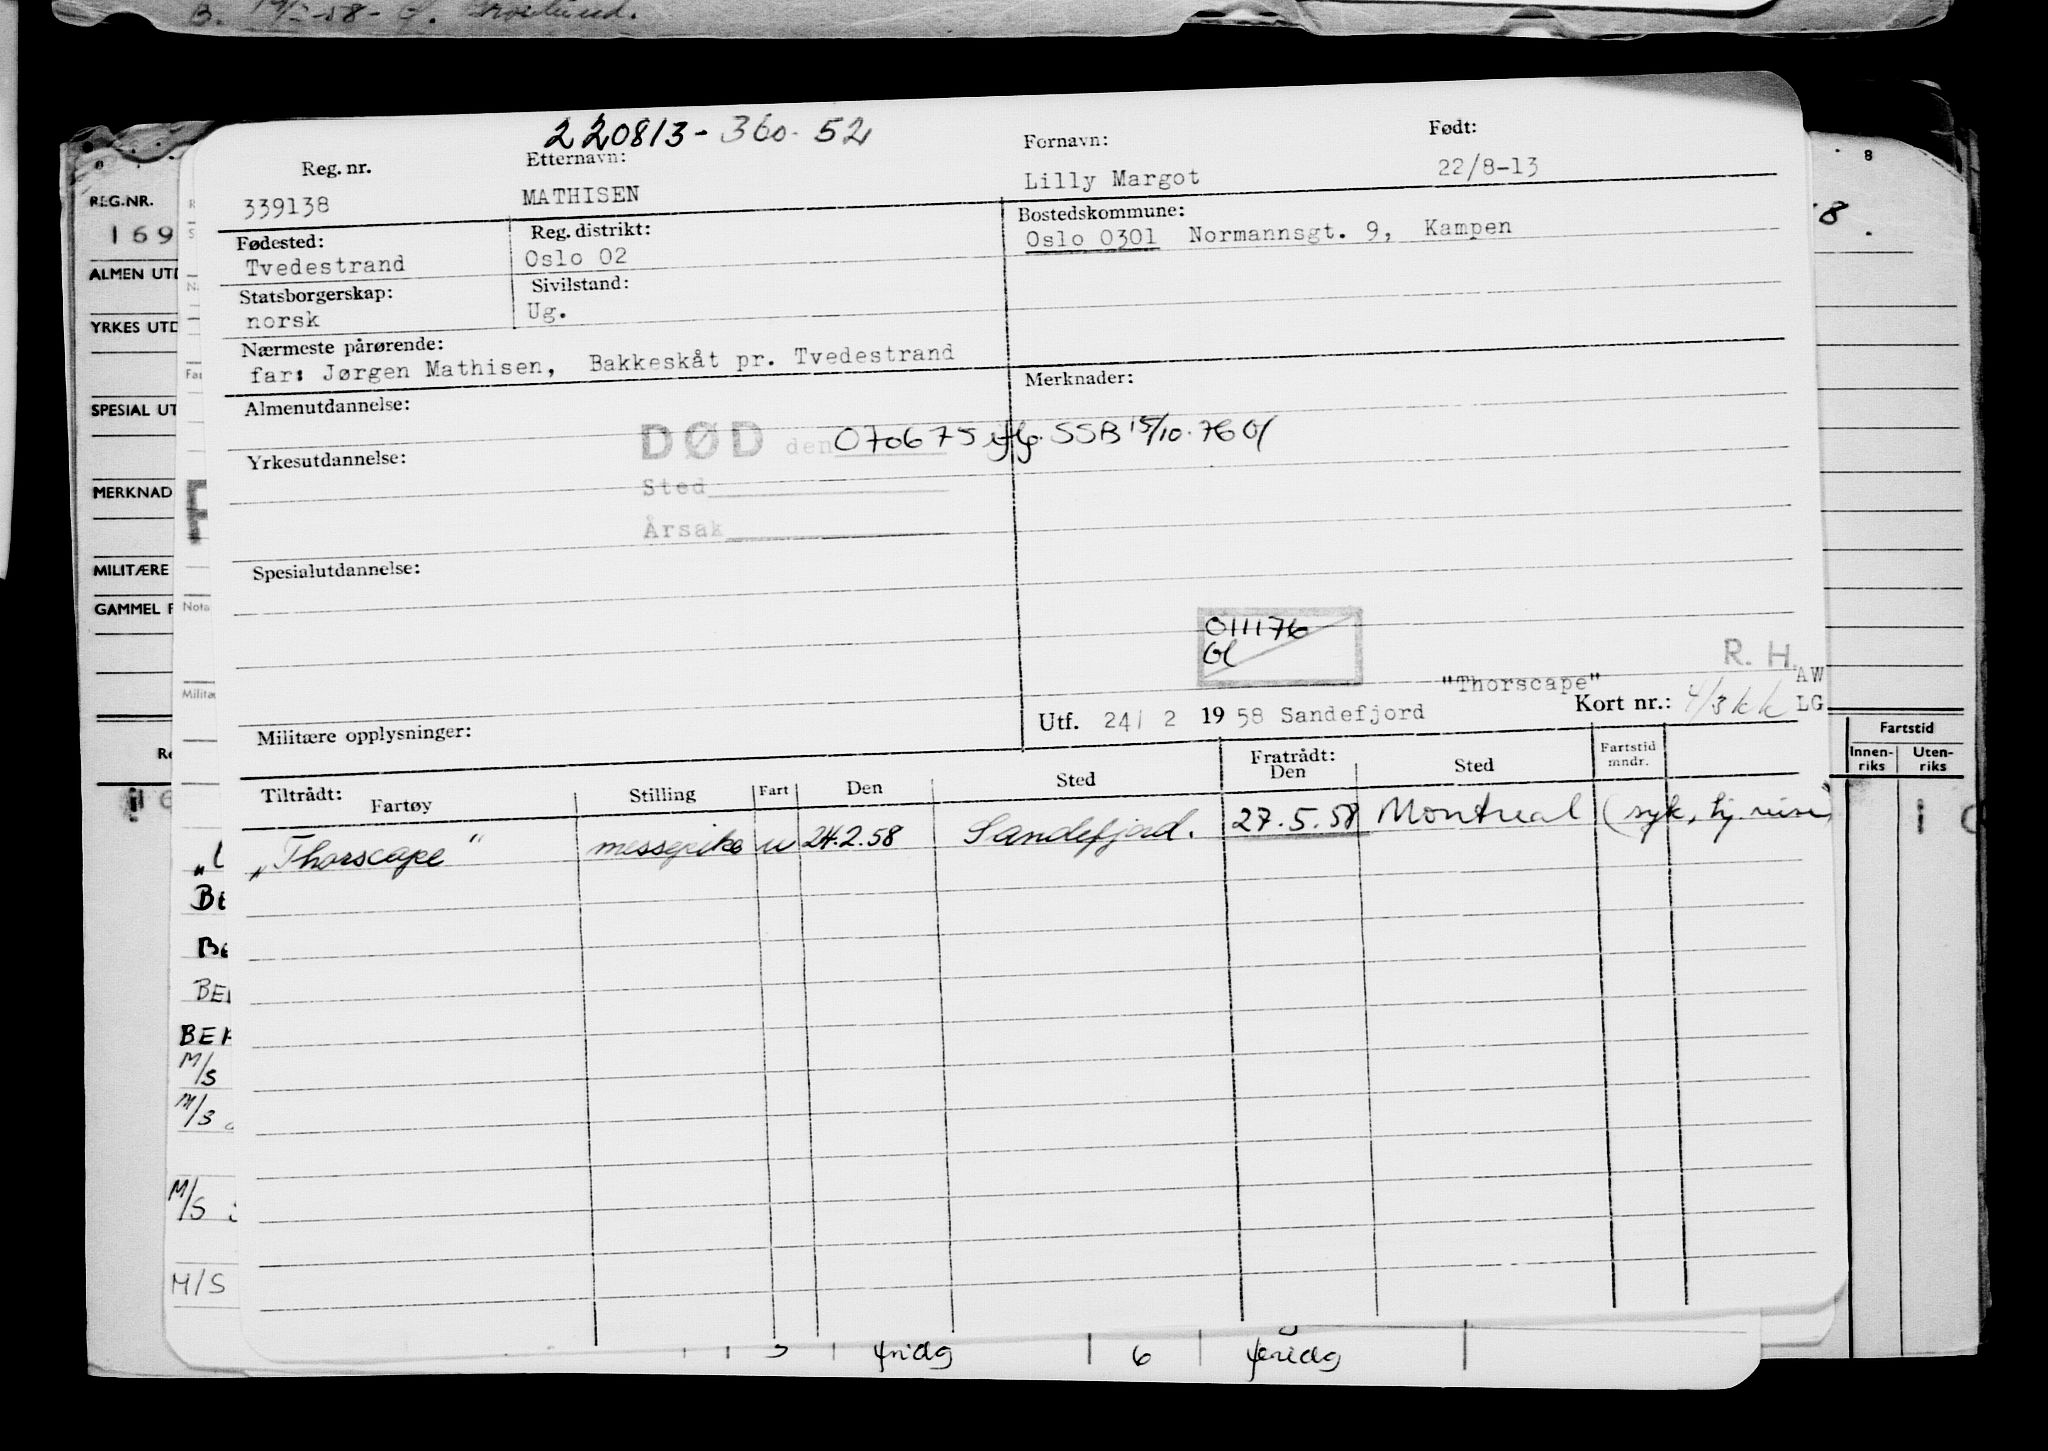 B. 19/2-58-
220813-360-52
Reg. nr. Etternavn: Fornavn: Født:
339138 MATHISEN Lilly Margot 22/8-13
Fødested: Reg. distrikt: Bostedskommune:
Tvedestrand Oslo 02 Oslo 0301 Normannsgt. 9, Kampen
Statsborgerskap: Sivilstand:
norsk Ug.
Nærmeste pårørende:
far: Jørgen Mathisen, Bakkeskåt pr. Tvedestrand
Almenutdannelse: Merknader:
DØD den 070675 iflg. SSB 15/10-76 Gl
Yrkesutdannelse:
Sted
Årsak
Spesialutdannelse:
011176
Gl
R. H. AW
"Thorscape"
Utf. 24/ 2 1958 Sandefjord Kort nr.: 4/3 kk LG
Militære opplysninger:
Tiltrådt: Fratrådt:
Fartøy Stilling Fart Den Sted Den Sted Fartstid mndr.
"Thorscape" messepike u 24.2.58 Sandefjord. 27.5.58 Montreal (syk, hj. reise)
REG.NR.
169
ALMEN UTD
YRKES UTD
SPESIAL UT
MERKNAD
MILITÆRE
GAMMEL F
Nota
Militæ
Re
BE
BEI
BEK
M/S
M/S
M/S
M/S
8
8.
Fartstid
Innen-riks Uten-riks
1 0
6